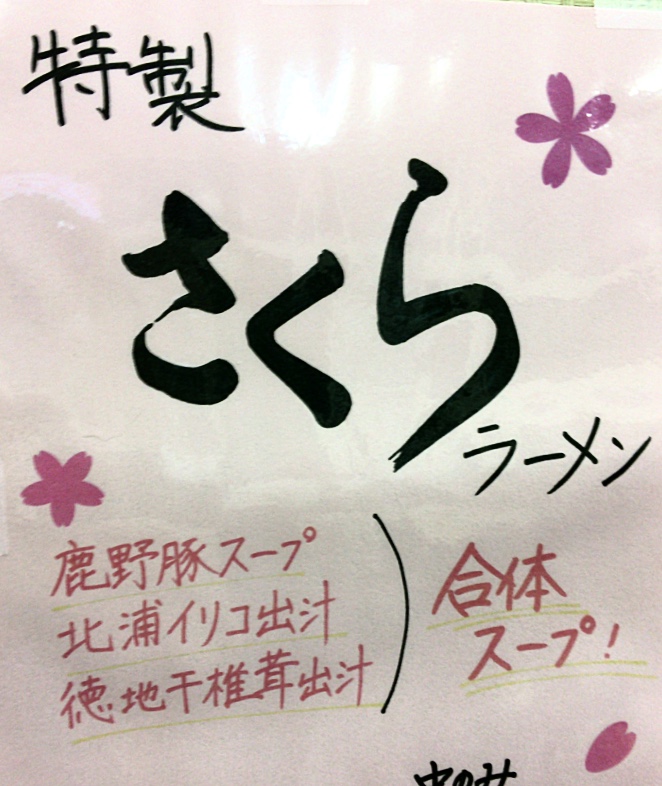 特製
さくら
ラーメン
鹿野豚スープ
北浦イリコ出汁
徳地干椎茸出汁
合体
スープ!